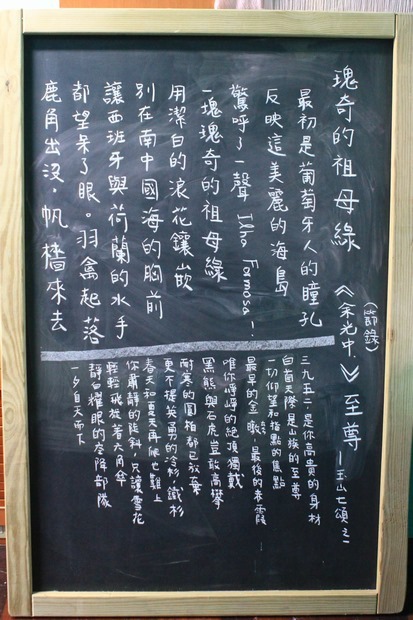 瑰奇的祖母綠
《余光中》
(節錄)
最初是葡萄牙人的瞳孔
反映這美麗的海島
驚呼了一聲 Ilha Formosa!
一塊瑰奇的祖母綠
用潔白的浪花鑲嵌
別在南中國海的胸前
讓西班牙與荷蘭的水手
都望呆了眼。羽禽起落
鹿角出沒,帆檣來去
至尊—玉山七頌之一
三九五二,是你高貴的身材
白首天際是山族的至尊
一切仰望和指點的焦點
最早的金曦,最後的赤霞
唯你崢崢的絕頂獨戴
黑熊與石虎豈敢高攀
耐寒的圓柏都已放棄
更不提英勇的冷杉,鐵杉
春天和夏天再爬也難上
你肅靜的陡斜,只讓雪花
輕輕飛旋著六角傘
靜白耀眼的空降部隊
一夕自天而下